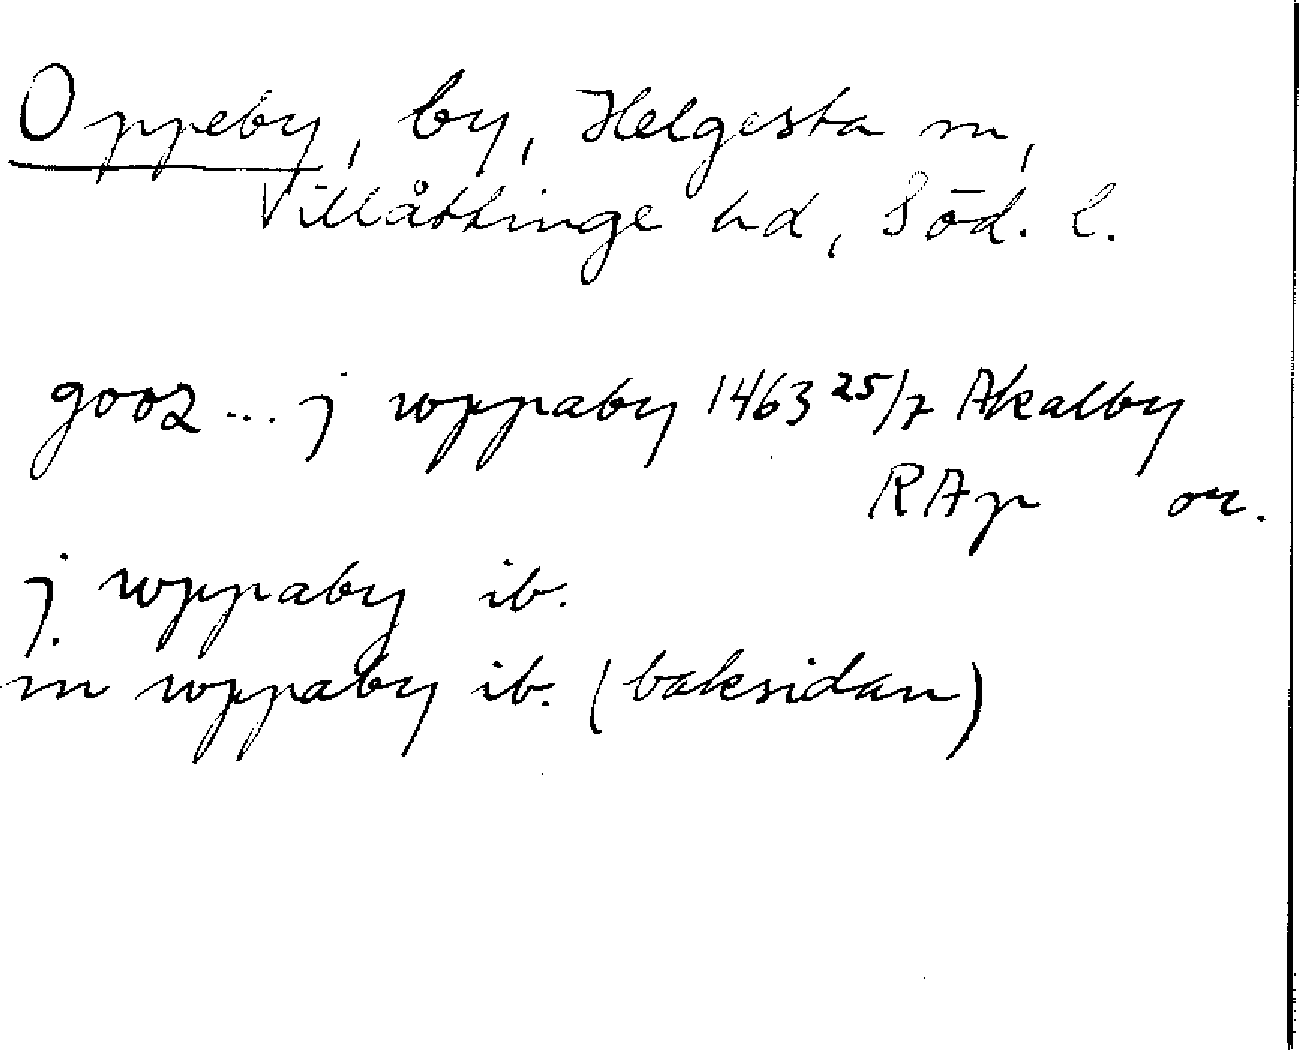 Oppeby, by, Helgesta sn,
Villåttinge hd, Söd. l.
gooz ... j wppaby 1463 25/7 Akalby
RAp or.
j wppaby ib.
in wppaby ib. (baksidan)